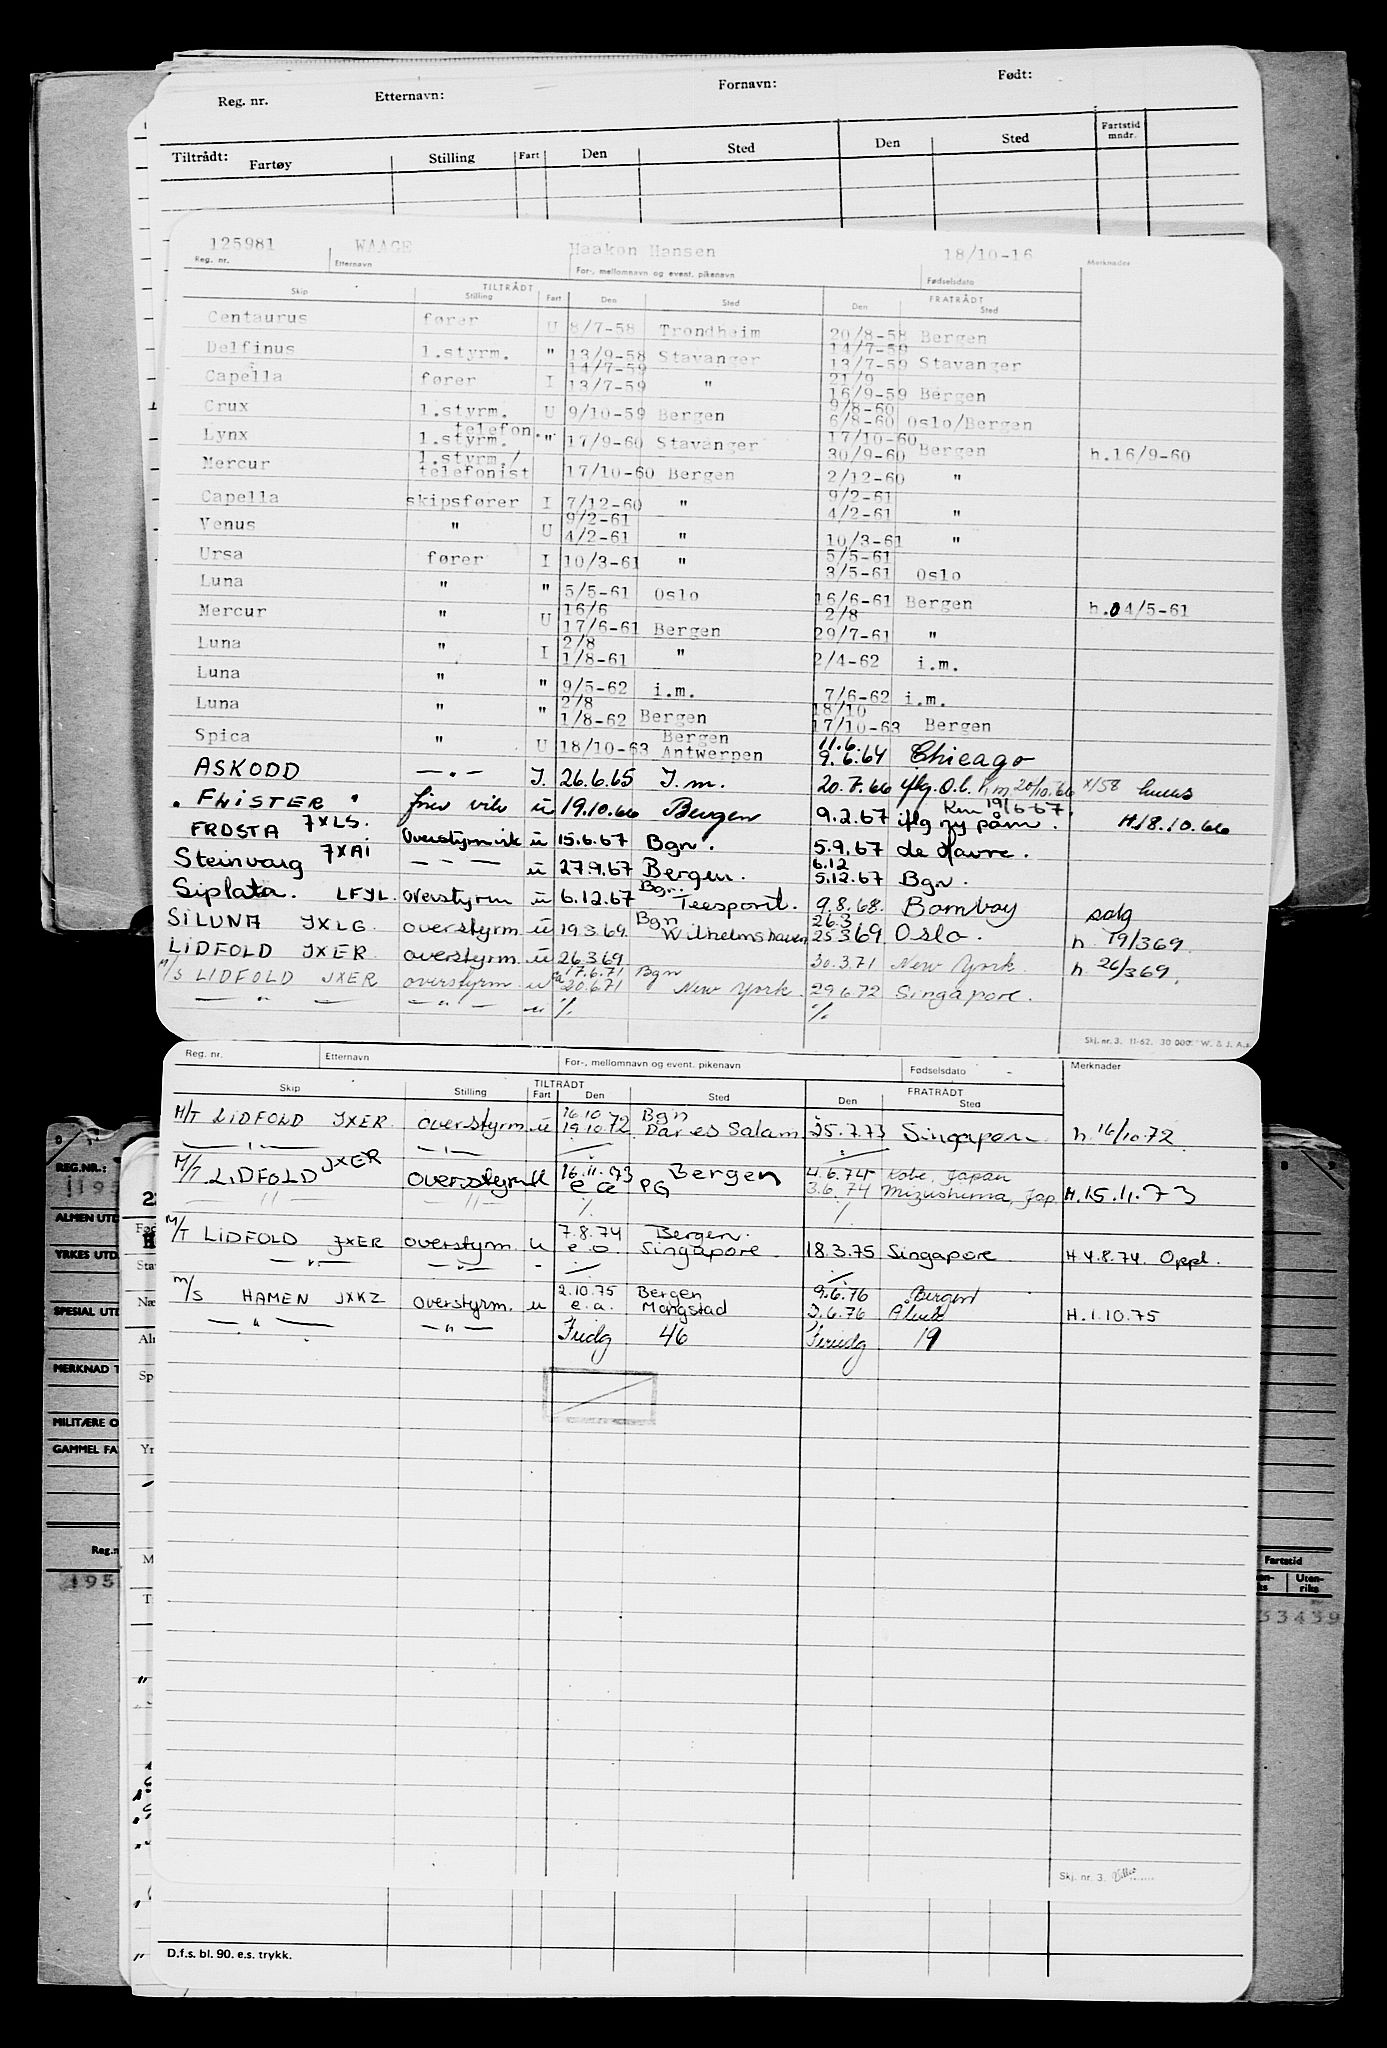 Reg. nr. Etternavn: Fornavn: Født:
Tiltrådt: Fartøy Stilling Fart Den Sted Den Sted Fartstid mndr.
125981 WAAGE Haakon Hansen 18/10-16
Reg. nr. Etternavn For-, mellomnavn og event. pikenavn Fødselsdato Merknader
TILTRÅDT FRATRÅDT
Skip Stilling Fart Den Sted Den Sted
Centaurus fører U 8/7-58 Trondheim 20/8-58 Bergen
Delfinus 1.styrm. " 13/9-58 Stavanger 14/7-59 13/7-59 Stavanger
Capella fører I 14/7-59 13/7-59 " 21/9 16/9-59 Bergen
Crux 1.styrm. U 9/10-59 Bergen 9/8-60 6/8-60 Oslo/Bergen
Lynx telefon. 1.styrm. " 17/9-60 Stavanger 17/10-60 30/9-60 Bergen h.16/9-60
Mercur 1.styrm./ telefonist 17/10-60 Bergen 2/12-60 "
Capella skipsfører I 7/12-60 " 9/2-61 4/2-61 "
Venus " U 9/2-61 4/2-61 " 10/3-61 "
Ursa fører I 10/3-61 " 5/5-61 3/5-61 Oslo
Luna " " 5/5-61 Oslo 16/6-61 Bergen h.04/5-61
Mercur " U 16/6 17/6-61 Bergen 2/8 29/7-61 "
Luna " I 2/8 1/8-61 " 2/4-62 i.m.
Luna " " 9/5-62 i.m. 7/6-62 i.m.
Luna " " 2/8 1/8-62 Bergen 18/10 17/10-63 Bergen
Spica " U 18/10-63 Bergen Antwerpen 11.6. 9.6.64 Chicago
ASKODD — " — I. 26.6.65 I.m. 20.7.66 20/10.66 x/58
" FHISTER " fører vik u 19.10.66 Bergen 9.2.67 19/6 67. H.18.10.66
FROSTA JXLS. Overstyrm vik u 15.6.67 Bgn. 5.9.67 de Havre.
Steinvarg JXAI — " — u 27.9.67 Bergen. 6.12 5.12.67 Bgn.
Siplata. LFJL. overstyrm u 6.12.67 Bgn. Teesport. 9.8.68. Bombay salg
SILUNA JXLG. overstyrm u 19 3 69. Bgn Wilhelmshaven 26.3 25 3 69 Oslo. h. 19/3 69.
LIDFOLD JXER overstyrm. u 26 3 69 30.3.71 New York h. 26/3 69.
M/S LIDFOLD JXER overstyrm u 17.6.71 20.6.71 Bgn New York. 29 6 72 Singapore.
— " — — " — u ./. ./.
Skj. nr. 3. 11-62. 30 000. W. & J. A.s
Reg. nr. Etternavn For-, mellomnavn og event. pikenavn Fødselsdato Merknader
TILTRÅDT FRATRÅDT
Skip Stilling Fart Den Sted Den Sted
M/T LIDFOLD JXER overstyrm. u 16.10 19.10.72 Bgn Dar es Salam 25.7.73 Singapore h. 16/10.72
— " — — " — ./. ./.
M/T LIDFOLD JXER Overstyrm U 16.11.73 e a Bergen PG 4.6.74 3.6.74 Kobe, Japan Mizushima, Jap. H.15.11.73
" — " — ./. ./.
M/T LIDFOLD JXER overstyrm. u 7.8.74 e.o. Bergen. Singapore 18.3.75 Singapore H 4.8.74. Oppl.
— " — — " — - ./. ./.
M/S HAMEN JXKZ overstyrm. u 2.10.75 e.a. Bergen Mongstad 9.6.76 7.6.76 Bergen H.1.10.75
— " — — " — 46 19
Skj. nr. 3.
D.f.s. bl. 90. e.s. trykk.
REG.NR.:
ALMEN UTD
YRKES UTD.
SPESIAL UTD
MERKNAD T
MILITÆRE O
GAMMEL FA
Reg.n
195
Fartstid
Uten-riks
33439